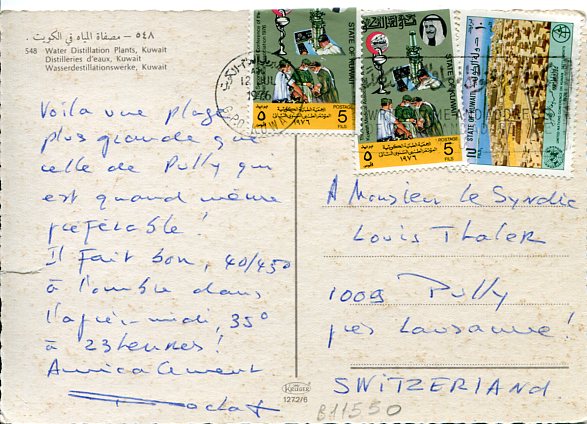 ٥٤٨ – مصفاة المياه في الكويت
548 Water Distillation Plants, Kuwait
Distilleries d'eaux, Kuwait
Wasserdestillationswerke, Kuwait
Voilà une plage
plus grande que
celle de Pully qui
est quand même
préférable !
Il fait bon, 40/45°
à l'ombre dans
l'après-midi, 35°
à 23 heures !
Amicalement
STATE OF KUWAIT
POSTAGE
5
FILS
٥
١٩٧٦
STATE OF KUWAIT
POSTAGE
5
FILS
٥
١٩٧٦
STATE OF KUWAIT
10
١٠
12
1976
A Monsieur le Syndic
Louis Thaler
1009 Pully
près Lausanne !
SWITZERLAND
Kruger
1272/6
B11550